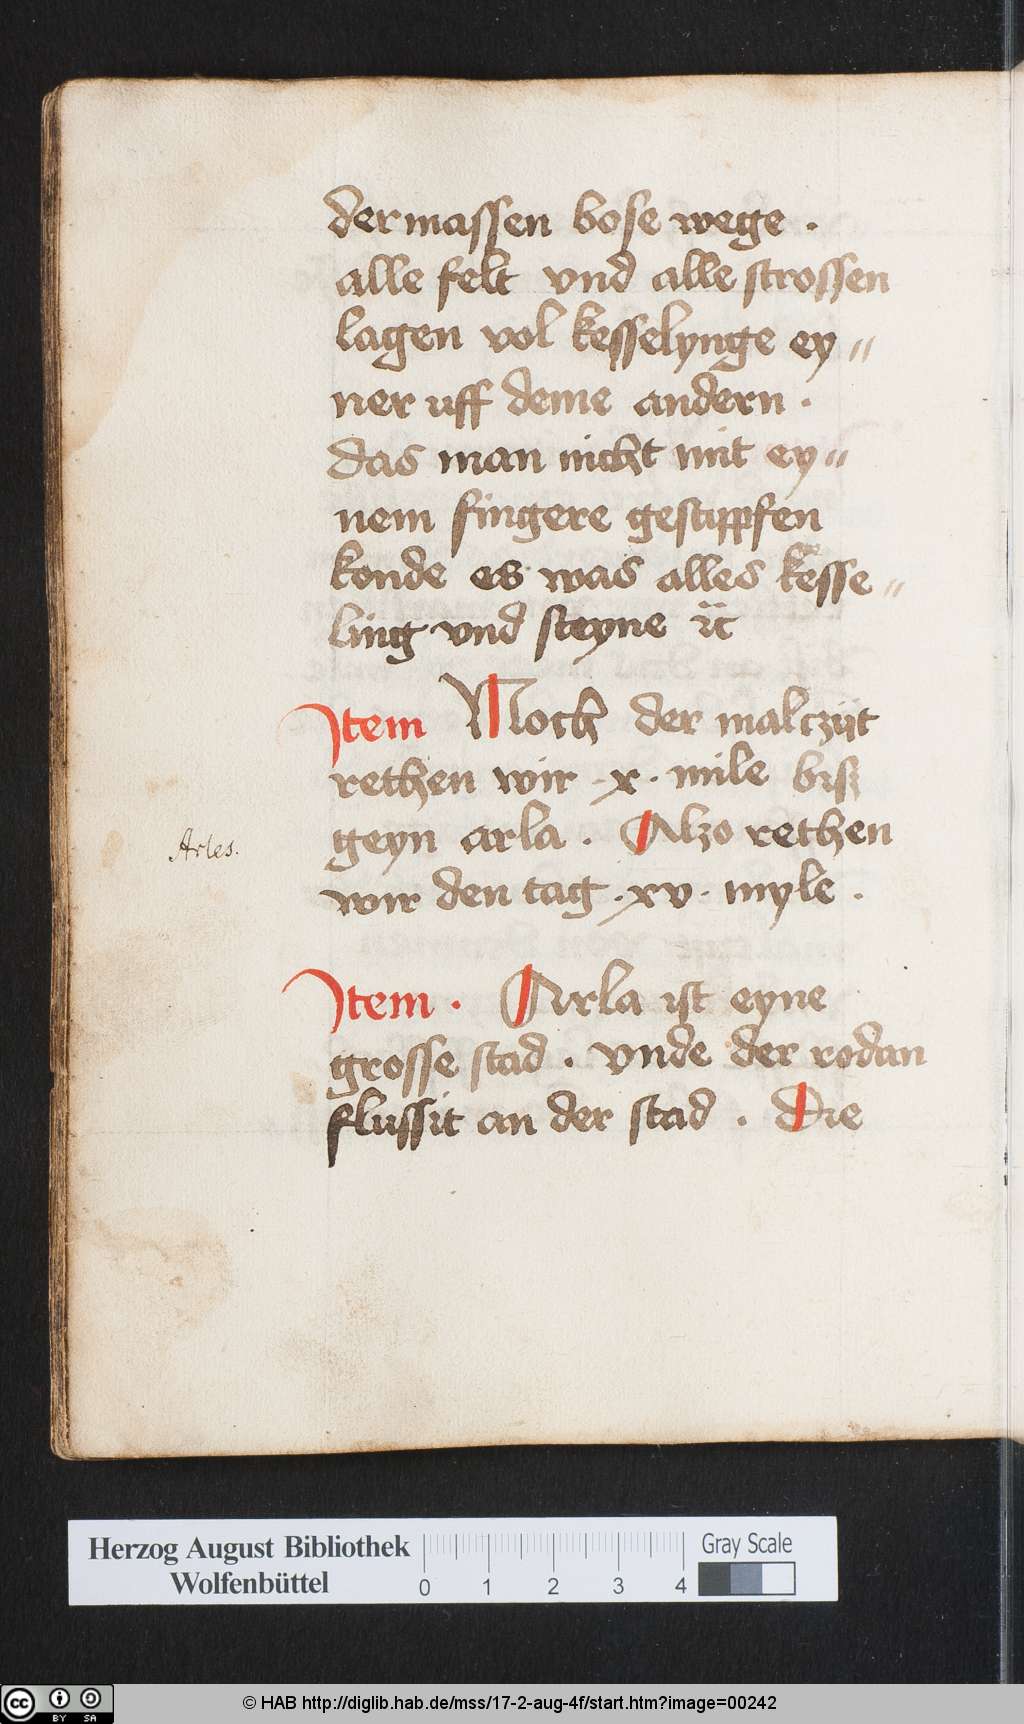 dermassen bose wege .
alle felt vnd alle strossen
lagen vol kesselynge ey„
ner uff deme andern .
das man nicht mit ey„
nem fingere gestippfen
konde es was alles kesse„
ling vnd steyne ꝛc
Item Noch der malczijt
rethen wir . x . mile bisz
geyn arla . Alzo rethen
Arles.
wir den tag . xv . myle .
Item . Arla ist eyne
grosse stad . vnde der rodan
flussit an der stad . Die
Herzog August Bibliothek
Wolfenbüttel
0 1 2 3 4
Gray Scale
cc BY SA
© HAB http://diglib.hab.de/mss/17-2-aug-4f/start.htm?image=00242